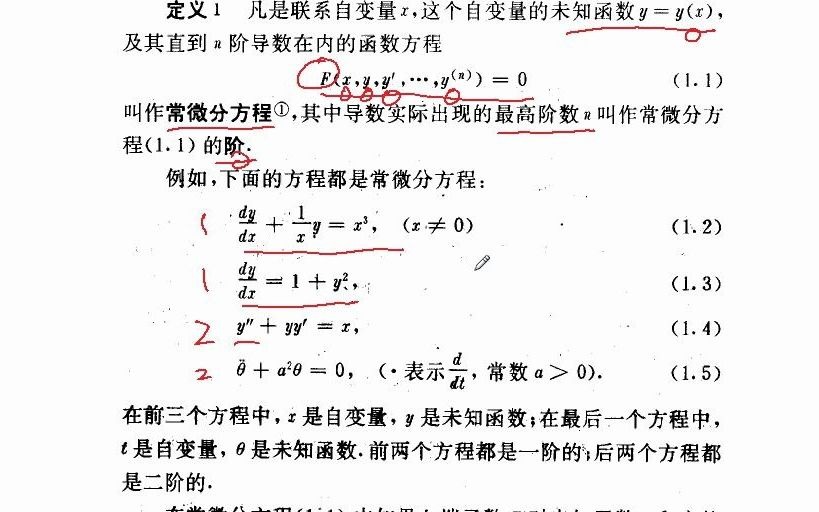 定义1 凡是联系自变量x,这个自变量的未知函数y=y(x),
及其直到n阶导数在内的函数方程
F(x,y,y′,⋯,y⁽ⁿ⁾)=0 (1.1)
叫作常微分方程①,其中导数实际出现的最高阶数n叫作常微分方
程(1.1)的阶.
例如,下面的方程都是常微分方程:
1 dy/dx + 1/x y = x³, (x≠0) (1.2)
1 dy/dx = 1 + y², (1.3)
2 y″ + yy′ = x, (1.4)
2 θ̈ + a²θ = 0, (· 表示 d/dt, 常数 a > 0). (1.5)
在前三个方程中,x是自变量,y是未知函数;在最后一个方程中,
t是自变量,θ是未知函数.前两个方程都是一阶的;后两个方程都
是二阶的.